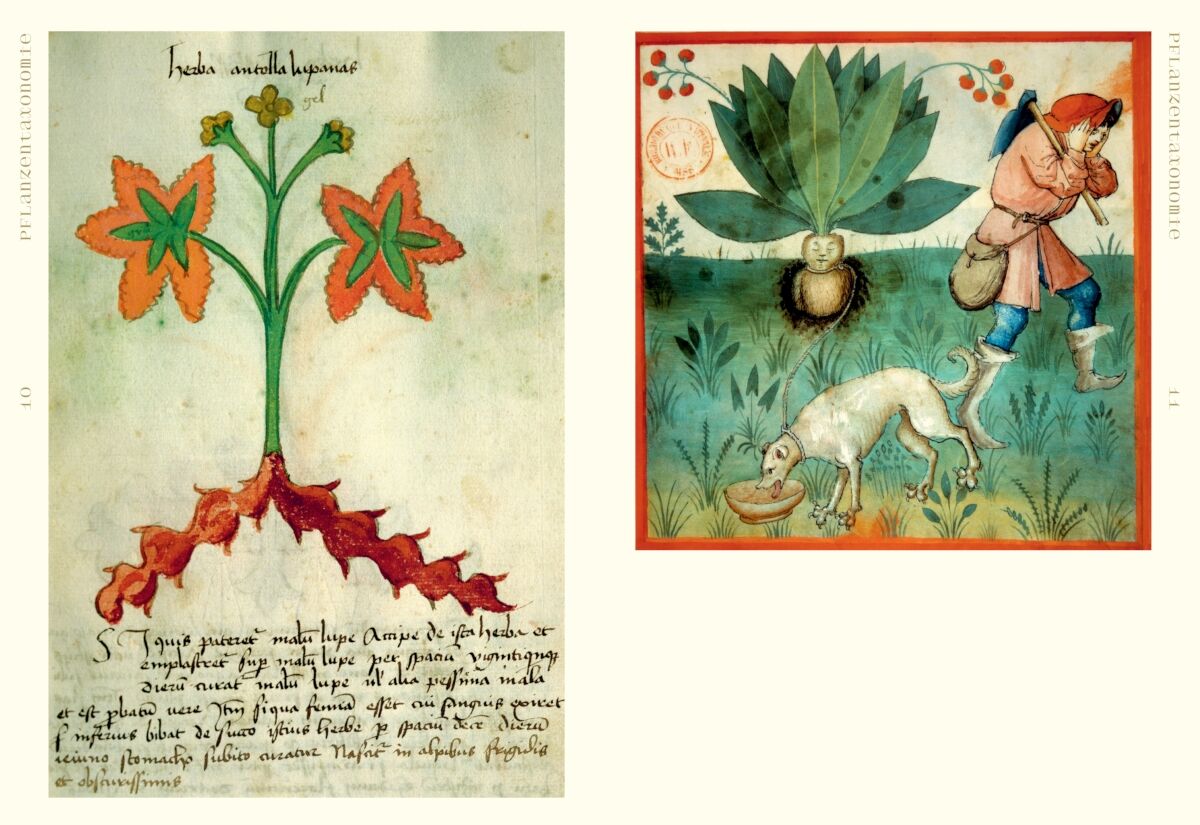 Pflanzentaxonomie
10
herba antolla lupanas
gel
Siquis pateret᷑ malū lupe Accipe de ista herba et
emplastret᷑ sup̄ malū lupe per spaciū vigintiqnqꝫ
dierū curat malū lupe ul' alia pessima mala
et est ꝓbatū vere Itm̄ siqua femīa esset cui sanguis exiret
inferius bibat de succo istius herbe ꝑ spaciū decē dierū
ieiuno stomacho subito curatur Nascit᷑ in alpibus frigidis
et obscurissimis
R.F
Pflanzentaxonomie
11